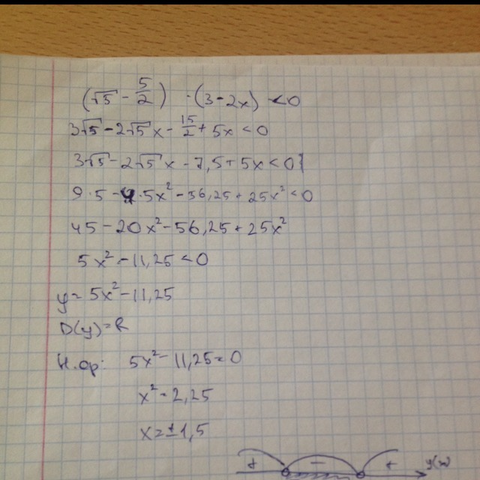 (√5 - 5/2) · (3 - 2x) < 0
3√5 - 2√5x - 15/2 + 5x < 0
3√5 - 2√5x - 7,5 + 5x < 0 |
9·5 - 4·5x² - 56,25 + 25x² < 0
45 - 20x² - 56,25 + 25x²
5x² - 11,25 < 0
y = 5x² - 11,25
D(y) = R
Н.ор: 5x² - 11,25 = 0
x² = 2,25
x = ±1,5
+ - + y(x)